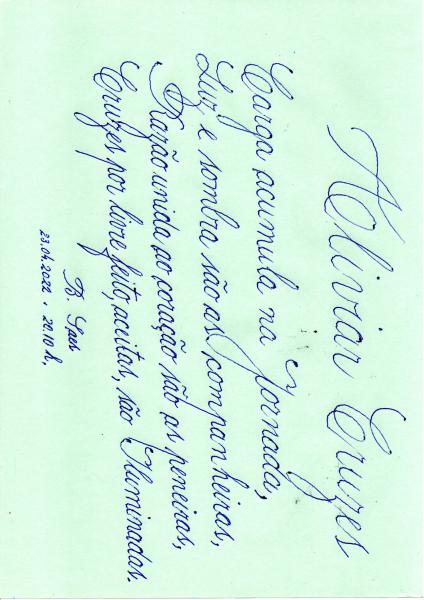 Aliviar Cruzes
Carga acumula na Jornada,
Luz e sombra são as companheiras,
Razão unida ao coração são as peneiras,
Cruzes por livre feito, aceitas, são Iluminadas.
B. Spes
23.04.2022 . 20.10 h,